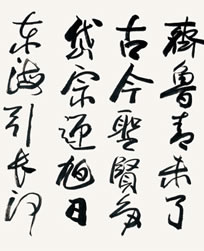 齊魯青未了
古今聖賢多
岱宗迎旭日
东海引长河